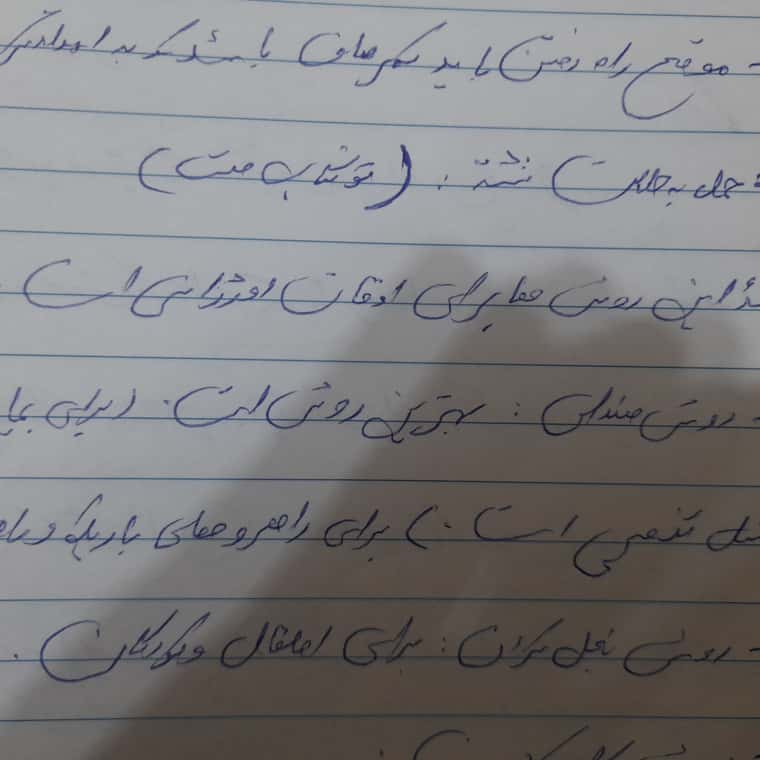 - موقع راه رفتن باید کمر صاف باشد که به امدادگر
حمل به حالت نشسته : (تو کتاب هست)
این روش ها برای اوقات اورژانسی است .
- روش صندلی : بهترین روش است . (برای
تنفسی است .) برای راهروهای باریک و
- روش بغل کردن : برای اطفال و کودکان .